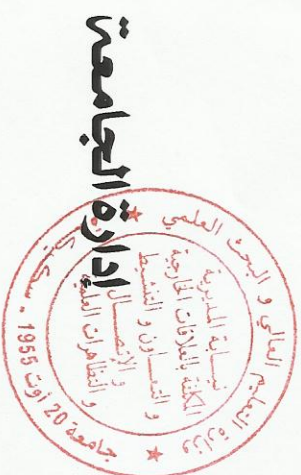 إدارة الجامعة
وزارة التعليم العالي و البحث العلمي
جامعة 20 أوت 1955 - سكيكدة
نيابة المديرية
المكلفة بالعلاقات الخارجية
و التعاون و التنشيط
و الاتصال
و التظاهرات العلمية